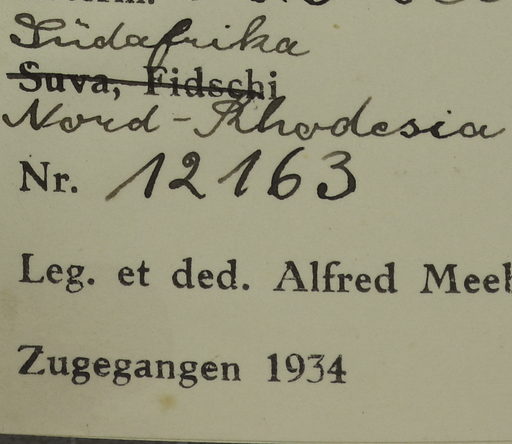 Südafrika
Suva, Fidschi
Nord-Rhodesia
Nr. 12163
Leg. et ded. Alfred
Zugegangen 1934